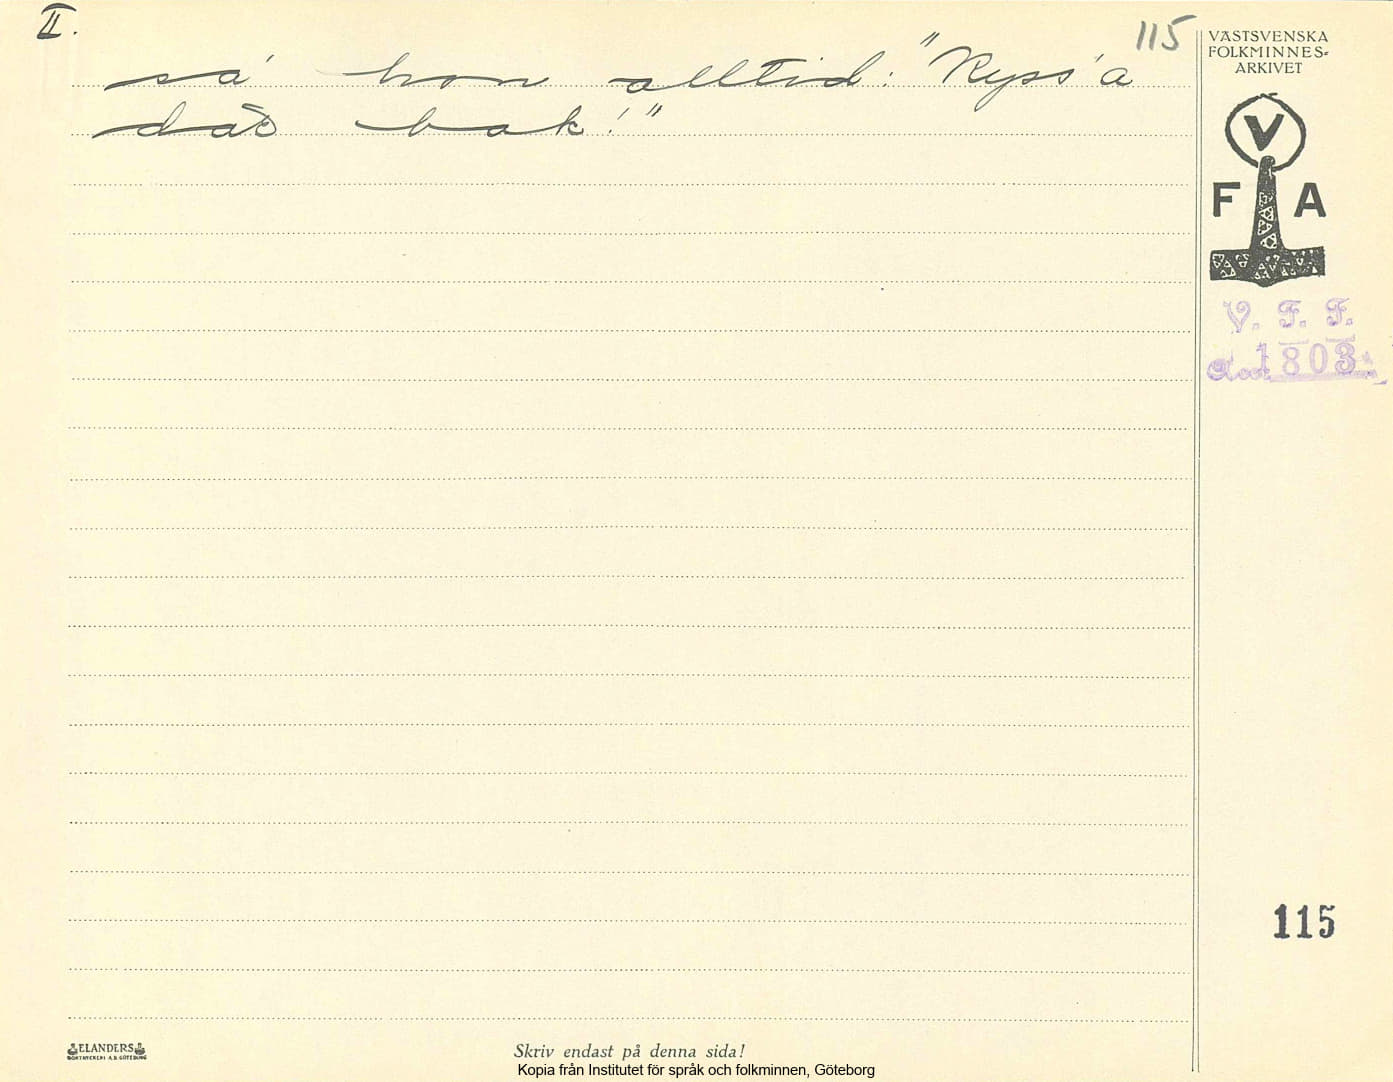 II.
115
så hon alltid: "Kyss'a
dåe bak!"
VÄSTSVENSKA
FOLKMINNES-
ARKIVET
V
F A
V. F. F.
Acc. 1803
115
ELANDERS
BOKTRYCKERI A.B. GÖTEBORG
Skriv endast på denna sida!
Kopia från Institutet för språk och folkminnen, Göteborg